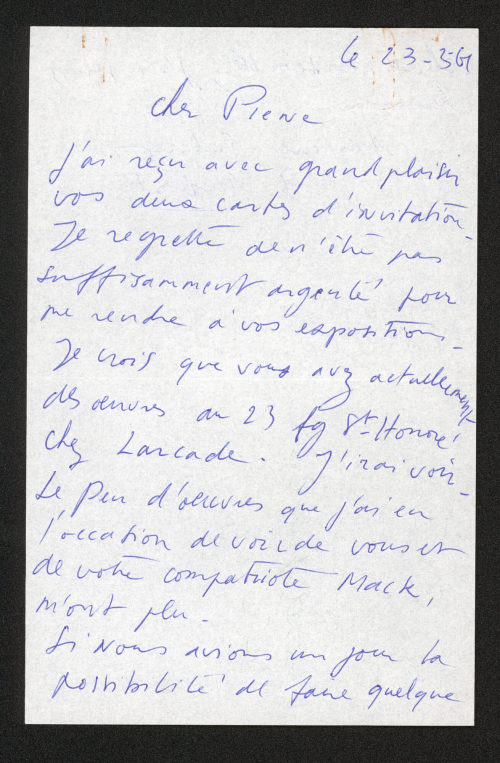 le 23-3 61
cher Piene
J'ai reçu avec grand plaisir
vos deux cartes d'invitation.
Je regrette de n'être pas
suffisamment argenté pour
me rendre à vos expositions.
Je crois que vous avez actuellement
des œuvres au 23 fg St-Honoré
chez Larcade. J'irai voir.
Le peu d'œuvres que j'ai eu
l'occation de voir de vous et
de votre compatriote Mack,
m'ont plu.
Si nous avions un jour la
possibilité de faire quelque